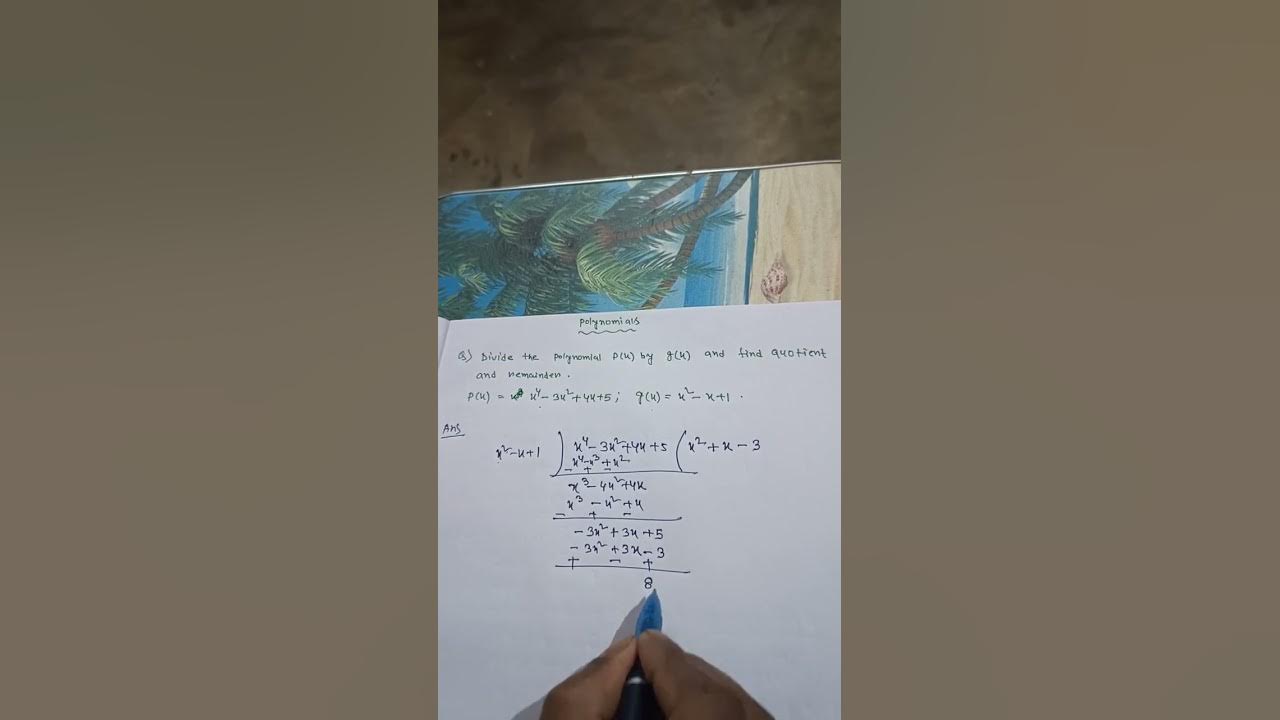 Polynomials
Q) Divide the polynomial P(x) by g(x) and find quotient
and remainder.
P(x) = x⁴ - 3x² + 4x + 5; g(x) = x² - x + 1.
Ans
x² - x + 1 ) x⁴ - 3x² + 4x + 5 ( x² + x - 3
x⁴ - x³ + x²
- + -
x³ - 4x² + 4x
x³ - x² + x
- + -
- 3x² + 3x + 5
- 3x² + 3x - 3
+ - +
8